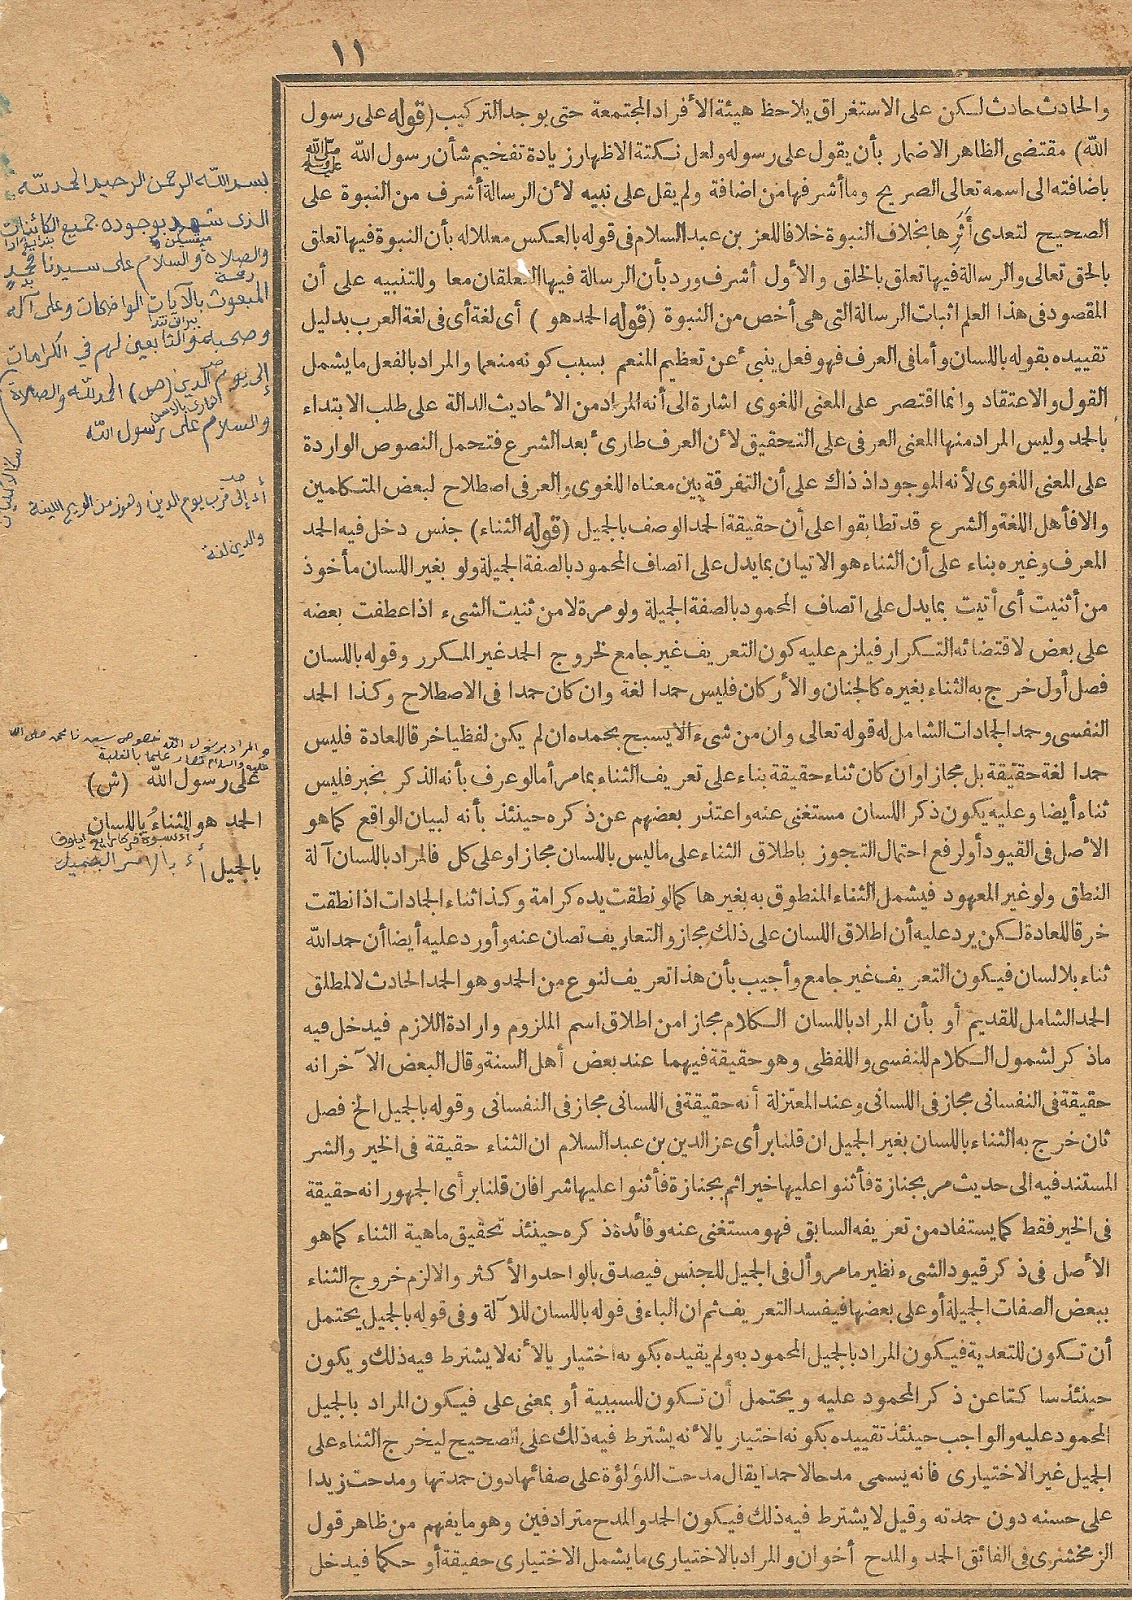 ١١
والحادث حادث لكن على الاستغراق يلاحظ هيئة الأفراد المجتمعة حتى يوجد التركيب (قوله على رسول
الله) مقتضى الظاهر الاضمار بأن يقول على رسوله ولعل نكتة الاظهار زيادة تفخيم شأن رسول الله ﷺ
باضافته الى اسمه تعالى الصريح وما أشرفها من اضافة ولم يقل على نبيه لأن الرسالة أشرف من النبوة على
الصحيح لتعدى أثرها بخلاف النبوة خلافا للعز بن عبد السلام فى قوله بالعكس معللا له بأن النبوة فيها تعلق
بالحق تعالى والرسالة فيها تعلق بالخلق والأول أشرف ورد بأن الرسالة فيها التعلقان معا وللتنبيه على أن
المقصود فى هذا العلم اثبات الرسالة التى هى أخص من النبوة (قوله الحمد هو) أى لغة أى فى لغة العرب بدليل
تقييده بقوله باللسان وأما فى العرف فهو فعل ينبئ عن تعظيم المنعم بسبب كونه منعما والمراد بالفعل ما يشمل
القول والاعتقاد وانما اقتصر على المعنى اللغوى اشارة الى أنه المراد من الأحاديث الدالة على طلب الابتداء
بالحمد وليس المراد منها المعنى العرفى على التحقيق لأن العرف طارئ بعد الشرع فتحمل النصوص الواردة
على المعنى اللغوى لأنه الموجود اذ ذاك على أن التفرقة بين معناه اللغوى والعرفى اصطلاح لبعض المتكلمين
والا فأهل اللغة والشرع قد تطابقوا على أن حقيقة الحمد الوصف بالجميل (قوله الثناء) جنس دخل فيه الحمد
المعرف وغيره بناء على أن الثناء هو الاتيان بما يدل على اتصاف المحمود بالصفة الجميلة ولو بغير اللسان مأخوذ
من أثنيت أى أتيت بما يدل على اتصاف المحمود بالصفة الجميلة ولو مرة لا من ثنيت الشىء اذا عطفت بعضه
على بعض لاقتضائه التكرار فيلزم عليه كون التعريف غير جامع لخروج الحمد غير المكرر وقوله باللسان
فصل أول خرج به الثناء بغيره كالجنان والأركان فليس حمدا لغة وان كان حمدا فى الاصطلاح وكذا الحمد
النفسى وحمد الجمادات الشامل له قوله تعالى وان من شىء الا يسبح بحمده ان لم يكن لفظيا خرقا للعادة فليس
حمدا لغة حقيقة بل مجازا وان كان ثناء حقيقة بناء على تعريف الثناء بما مر أما لو عرف بأنه الذكر بخير فليس
ثناء أيضا وعليه يكون ذكر اللسان مستغنى عنه واعتذر بعضهم عن ذكره حينئذ بأنه لبيان الواقع كما هو
الأصل فى القيود أو لرفع احتمال التجوز باطلاق الثناء على ما ليس باللسان مجازا وعلى كل فالمراد باللسان آلة
النطق ولو غير المعهود فيشمل الثناء المنطوق به بغيرها كما لو نطقت يده كرامة وكذا ثناء الجمادات اذا نطقت
خرقا للعادة لكن يرد عليه أن اطلاق اللسان على ذلك مجاز والتعاريف تصان عنه وأورد عليه أيضا أن حمد الله
ثناء بلا لسان فيكون التعريف غير جامع وأجيب بأن هذا تعريف لنوع من الحمد وهو الحمد الحادث لا لمطلق
الحمد الشامل للقديم أو بأن المراد باللسان الكلام مجازا من اطلاق اسم الملزوم وارادة اللازم فيدخل فيه
ماذكر لشمول الكلام للنفسى واللفظى وهو حقيقة فيهما عند بعض أهل السنة وقال البعض الآخر انه
حقيقة فى النفسانى مجاز فى اللسانى وعند المعتزلة أنه حقيقة فى اللسانى مجاز فى النفسانى وقوله بالجميل الخ فصل
ثان خرج به الثناء باللسان بغير الجميل ان قلنا برأى عز الدين بن عبد السلام ان الثناء حقيقة فى الخير والشر
المستند فيه الى حديث مر بجنازة فأثنوا عليها خيرا ثم بجنازة فأثنوا عليها شرا فان قلنا برأى الجمهور انه حقيقة
فى الخير فقط كما يستفاد من تعريفه السابق فهو مستغنى عنه وفائدة ذكره حينئذ تحقيق ماهية الثناء كما هو
الأصل فى ذكر قيود الشىء نظير ما مر وأل فى الجميل للجنس فيصدق بالواحد والأكثر والا لزم خروج الثناء
ببعض الصفات الجميلة أو على بعضها فيفسد التعريف ثم ان الباء فى قوله باللسان للآلة وفى قوله بالجميل يحتمل
أن تكون للتعدية فيكون المراد بالجميل المحمود به ولم يقيده بكونه اختياريا لأنه لا يشترط فيه ذلك ويكون
حينئذ ساكتا عن ذكر المحمود عليه ويحتمل أن تكون للسببية أو بمعنى على فيكون المراد بالجميل
المحمود عليه والواجب حينئذ تقييده بكونه اختياريا لأنه يشترط فيه ذلك على الصحيح ليخرج الثناء على
الجميل غير الاختيارى فانه يسمى مدحا لا حمدا يقال مدحت اللؤلؤة على صفائها دون حمدتها ومدحت زيدا
على حسنه دون حمدته وقيل لا يشترط فيه ذلك فيكون الحمد والمدح مترادفين وهو ما يفهم من ظاهر قول
الزمخشرى فى الفائق الحمد والمدح أخوان والمراد بالاختيارى ما يشمل الاختيارى حقيقة أو حكما فيدخل
بسم الله الرحمن الرحيم الحمد لله
الذى شهد بوجوده جميع الكائنات
والصلاة والسلام على سيدنا محمد
المبعوث بالآيات الواضحات وعلى آله
وصحبه والتابعين لهم فى الكرامات
إلى يوم الدين (ص) الحمد لله والصلاة
والسلام على رسول الله
إلى قرب يوم الدين وهو زمن الريح اللينة
والدين لغة
والمراد برسول الله خصوص سيدنا محمد صلى الله
عليه والسلام فصار علما بالغلبة
على رسول الله (ش)
الحمد هو الثناء باللسان
بالجميل
أى بالامر الجميل